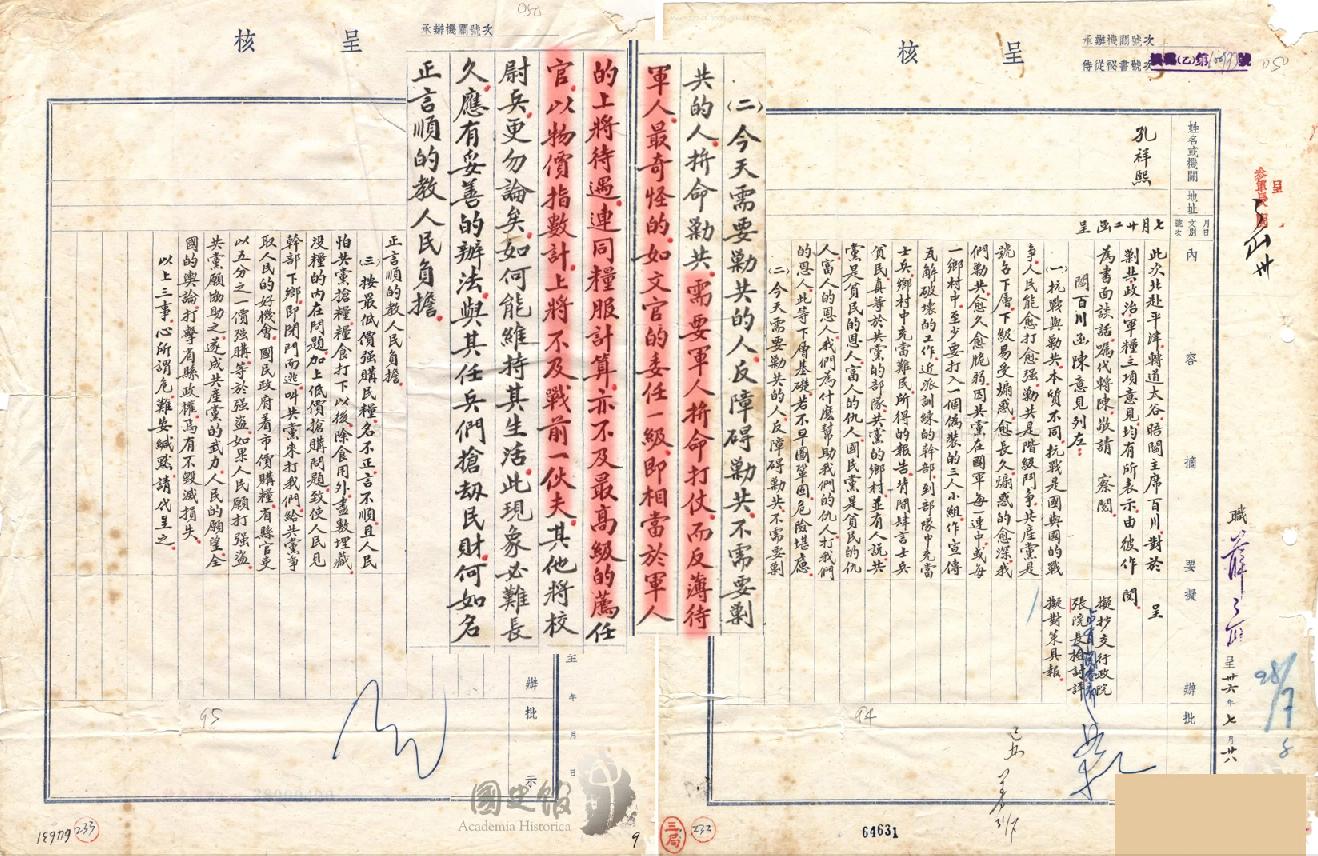 呈核
承辦機關號次
侍從秘書號次
機密(乙)第
號
姓名或機關
地址
月日
文別
號次
內容摘要
擬辦
批示
孔祥熙
七月廿二日
函呈
此次北赴平津轉道太谷晤閻主席百川對於
剿共政治軍糧三項意見均有所表示由彼作
為書面談話囑代轉陳敬請 察閱
閻百川函陳意見列左
(一)抗戰與勦共本質不同抗戰是國與國的戰
爭人民能愈打愈强勦共是階級鬥爭共產黨是
號召下層下級易受煽惑愈長久煽惑的愈深我
們勦共愈久愈脆弱因共黨在國軍每一連中或每
一鄉村中至少要打入一個偽裝的三人小組作宣傳
瓦解破壞的工作近派訓練的幹部到部隊中充當
士兵鄉村中充當難民所得的報告皆聞肆言士兵
貧民真等於共黨的部隊共黨的鄉村並有人說共
黨是貧民的恩人富人的仇人國民黨是貧民的仇
人富人的恩人我們為什麼幫助我們的仇人打我們
的恩人此等下層基礎若不早圖鞏固危險堪慮
(二)今天需要勦共的人反障碍勦共不需要剿
呈
閱
擬抄交行政院
張院長檢討詳
擬對策具報
職
呈 卅六年七月廿六
94
64631
三局
232
(二)今天需要勦共的人反障碍勦共不需要剿
共的人拚命勦共需要軍人拚命打仗而反薄待
軍人最奇怪的如文官的委任一級即相當於軍人
的上將待遇連同糧服計算亦不及最高級的薦任
官以物價指數計上將不及戰前一伙夫其他將校
尉兵更勿論矣如何能維持其生活此現象必難長
久應有妥善的辦法與其任兵們搶劫民財何如名
正言順的教人民負擔
呈核
承辦機關號次
正言順的教人民負擔
(三)按最低價强購民糧名不正言不順且人民
怕共黨搶糧糧食打下以後除食用外盡數埋藏
沒糧的內在問題加上低價搶購問題致使人民見
幹部下鄉即閉門而逃叫共黨來打我們給共黨爭
取人民的好機會國民政府有市價購糧有縣官吏
以五分之一價强購等於强盜如果人民願打强盜
共黨願協助之遂成共產黨的武力人民的願望全
國的輿論打擊有縣政權焉有不毀滅損失
以上三事心所謂危難安緘默請代呈之
年
月
日
批示
95
233
國史館
Academia Historica